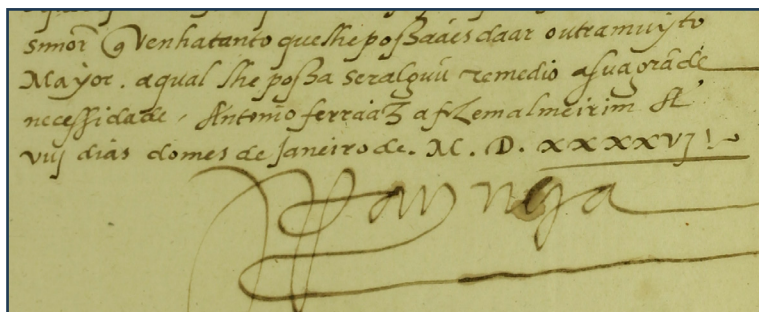 snnor q venha tanto que lhe poßaaes daar outra muyto
Mayor. aqual lhe poßa ser alguũ remedio a sua grãde
necessidade. Antonio ferraaz a fez em almeirim A
viij dias do mes de Janeiro de. M. D. xxxxvj